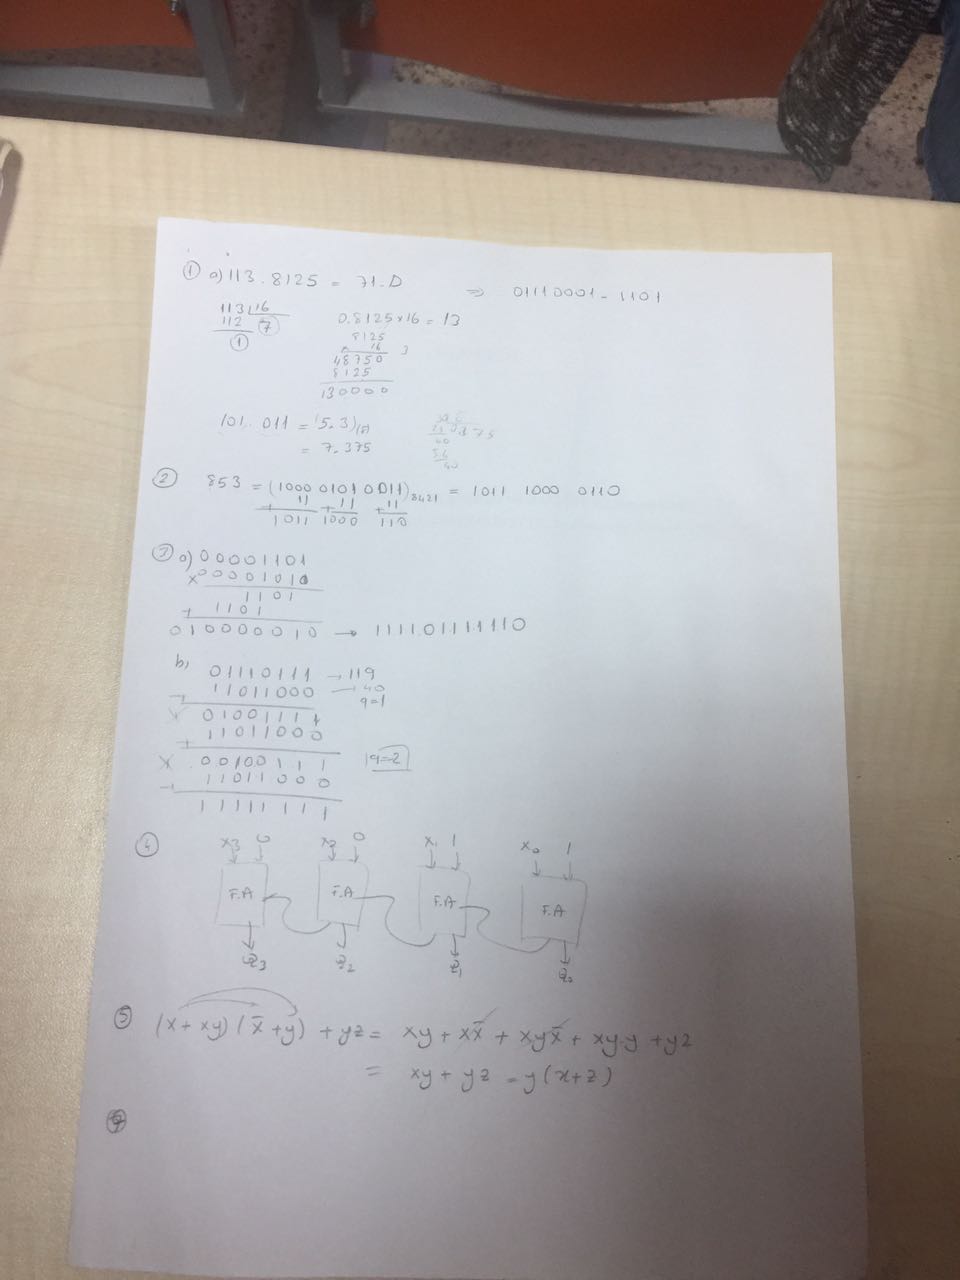 ① a) 113.8125 = 71.D ⇒ 01110001.1101
113 16
112 7
1
0.8125x16 = 13
8125
x 16
48750
8125
130000
101.011 = (5.3)
= 7.375
② 853 = (1000 0101 0011)8421 = 1011 1000 0110
+ 11 + 11 + 11
1011 1000 110
③ a) 00001101
x 00001010
1101
+ 1101
010000010 → 111101111110
b, 01110111 → 119
11011000 → 40
q=1
01001111
+ 11011000
00100111 q=2
11011000
11111111
④ x3 0 x2 0 x1 1 x0 1
F.A F.A F.A F.A
z3 z2 z1 z0
⑤ (x+xy)(x̄+y)+yz = xy+xx̄+xyx̄+xy.y+yz
= xy+yz = y(x+z)